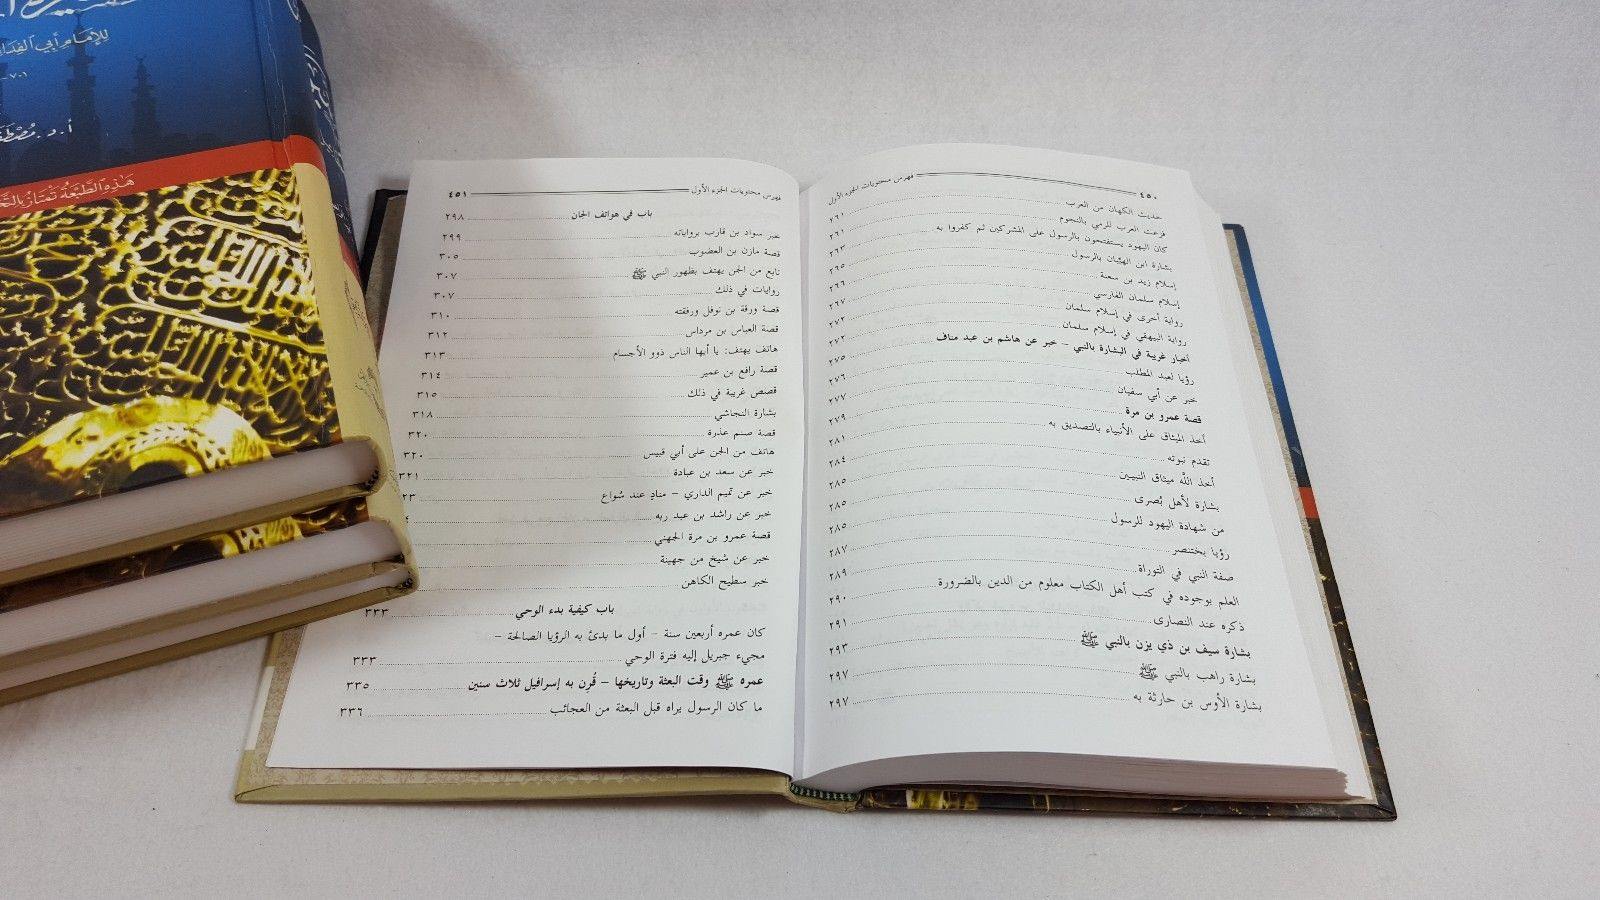 للإمام أبي الفداء
٧٠١-
أ.د. مصطفى
هَذِهِ الطَّبْعَةُ تَمْتَازُ بِالتَّـ
٤٥٠ فهرس محتويات الجزء الأول
حديث الكهان من العرب ٢٦١
فزعت العرب للرمي بالنجوم ٢٦١
كان اليهود يستفتحون بالرسول على المشركين ثم كفروا به ٢٦٣
بشارة ابن الهيّبان بالرسول ٢٦٥
إسلام زيد بن سعنة ٢٦٦
إسلام سلمان الفارسي ٢٦٧
رواية أخرى في إسلام سلمان ٢٧٢
رواية البيهقي في إسلام سلمان ٢٧٢
أخبار غريبة في البشارة بالنبي – خبر عن هاشم بن عبد مناف ٢٧٥
رؤيا لعبد المطلب ٢٧٦
خبر عن أبي سفيان ٢٧٧
قصة عمرو بن مرة ٢٧٩
أخذ الميثاق على الأنبياء بالتصديق به ٢٨١
تقدم نبوته ٢٨٤
أخذ الله ميثاق النبيين ٢٨٥
بشارة لأهل بُصرى ٢٨٥
من شهادة اليهود للرسول ٢٨٥
رؤيا بختنصر ٢٨٧
صفة النبي في التوراة ٢٨٩
العلم بوجوده في كتب أهل الكتاب معلوم من الدين بالضرورة ٢٩٠
ذكره عند النصارى ٢٩١
بشارة سيف بن ذي يزن بالنبي ﷺ ٢٩٣
بشارة راهب بالنبي ﷺ ٢٩٧
بشارة الأوس بن حارثة به ٢٩٧
فهرس محتويات الجزء الأول ٤٥١
باب في هواتف الجان ٢٩٨
خبر سواد بن قارب برواياته ٢٩٩
قصة مازن بن العضوب ٣٠٥
تابع من الجن يهتف بظهور النبي ﷺ ٣٠٧
روايات في ذلك ٣٠٧
قصة ورقة بن نوفل ورفقته ٣١٠
قصة العباس بن مرداس ٣١٢
هاتف يهتف: يا أيها الناس ذوو الأجسام ٣١٣
قصة رافع بن عمير ٣١٤
قصص غريبة في ذلك ٣١٥
بشارة النجاشي ٣١٨
قصة صنم عذرة ٣٢٠
هاتف من الجن على أبي قبيس ٣٢٠
خبر عن سعد بن عبادة ٣٢١
خبر عن تميم الداري – منادٍ عند سُواع ٢٣
خبر عن راشد بن عبد ربه ٤
قصة عمرو بن مرة الجهني
خبر عن شيخ من جهينة
خبر سطيح الكاهن
باب كيفية بدء الوحي ٣٣٣
كان عمره أربعين سنة – أول ما بدئ به الرؤيا الصالحة –
مجيء جبريل إليه فترة الوحي ٣٣٣
عمره ﷺ وقت البعثة وتاريخها – قُرِن به إسرافيل ثلاث سنين ٣٣٥
ما كان الرسول يراه قبل البعثة من العجائب ٣٣٦